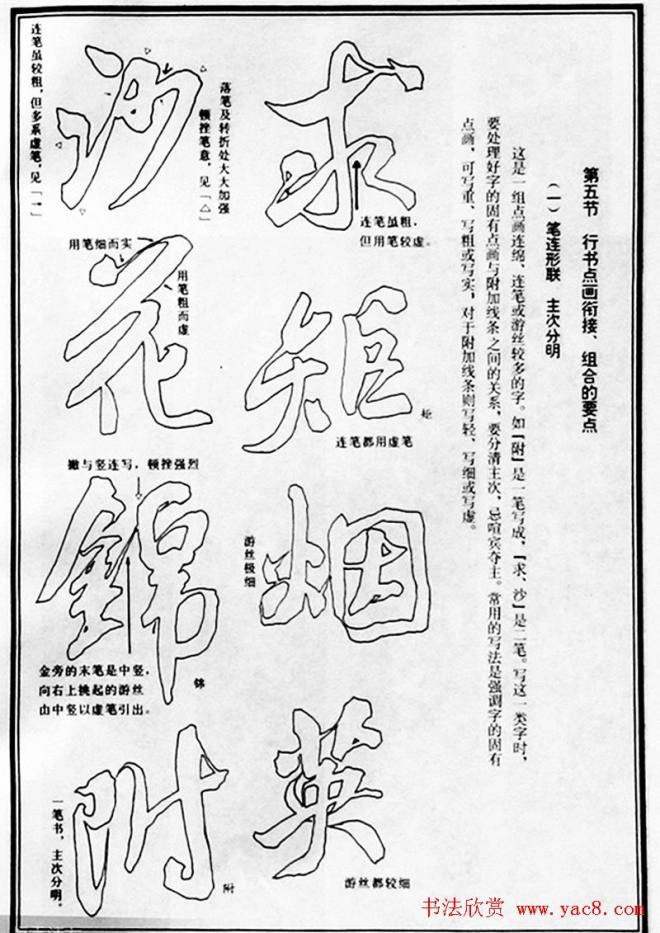 第五节 行书点画衔接、组合的要点
（一）笔连形联 主次分明
这是一组点画连绵、连笔或游丝较多的字。如「附」是一笔写成，「求、沙」是二笔。写这一类字时，
要处理好字的固有点画与附加线条之间的关系，要分清主次，忌喧宾夺主。常用的写法是强调字的固有
点画，可写重、写粗或写实，对于附加线条则写轻、写细或写虚。
求
连笔虽粗，
但用笔较虚。
矩
矩
连笔都用虚笔
烟
游丝极细
英
游丝都较细
沙
落笔及转折处大大加强
顿挫笔意，见「△」
连笔虽较粗，但多系虚笔，见「→」
花
用笔细而实
用笔粗而虚
锦
撇与竖连写，顿挫强烈
锦
金旁的末笔是中竖，
向右上挑起的游丝
由中竖以虚笔引出。
附
附
一笔书，主次分明。
书法欣赏 www.yac8.com